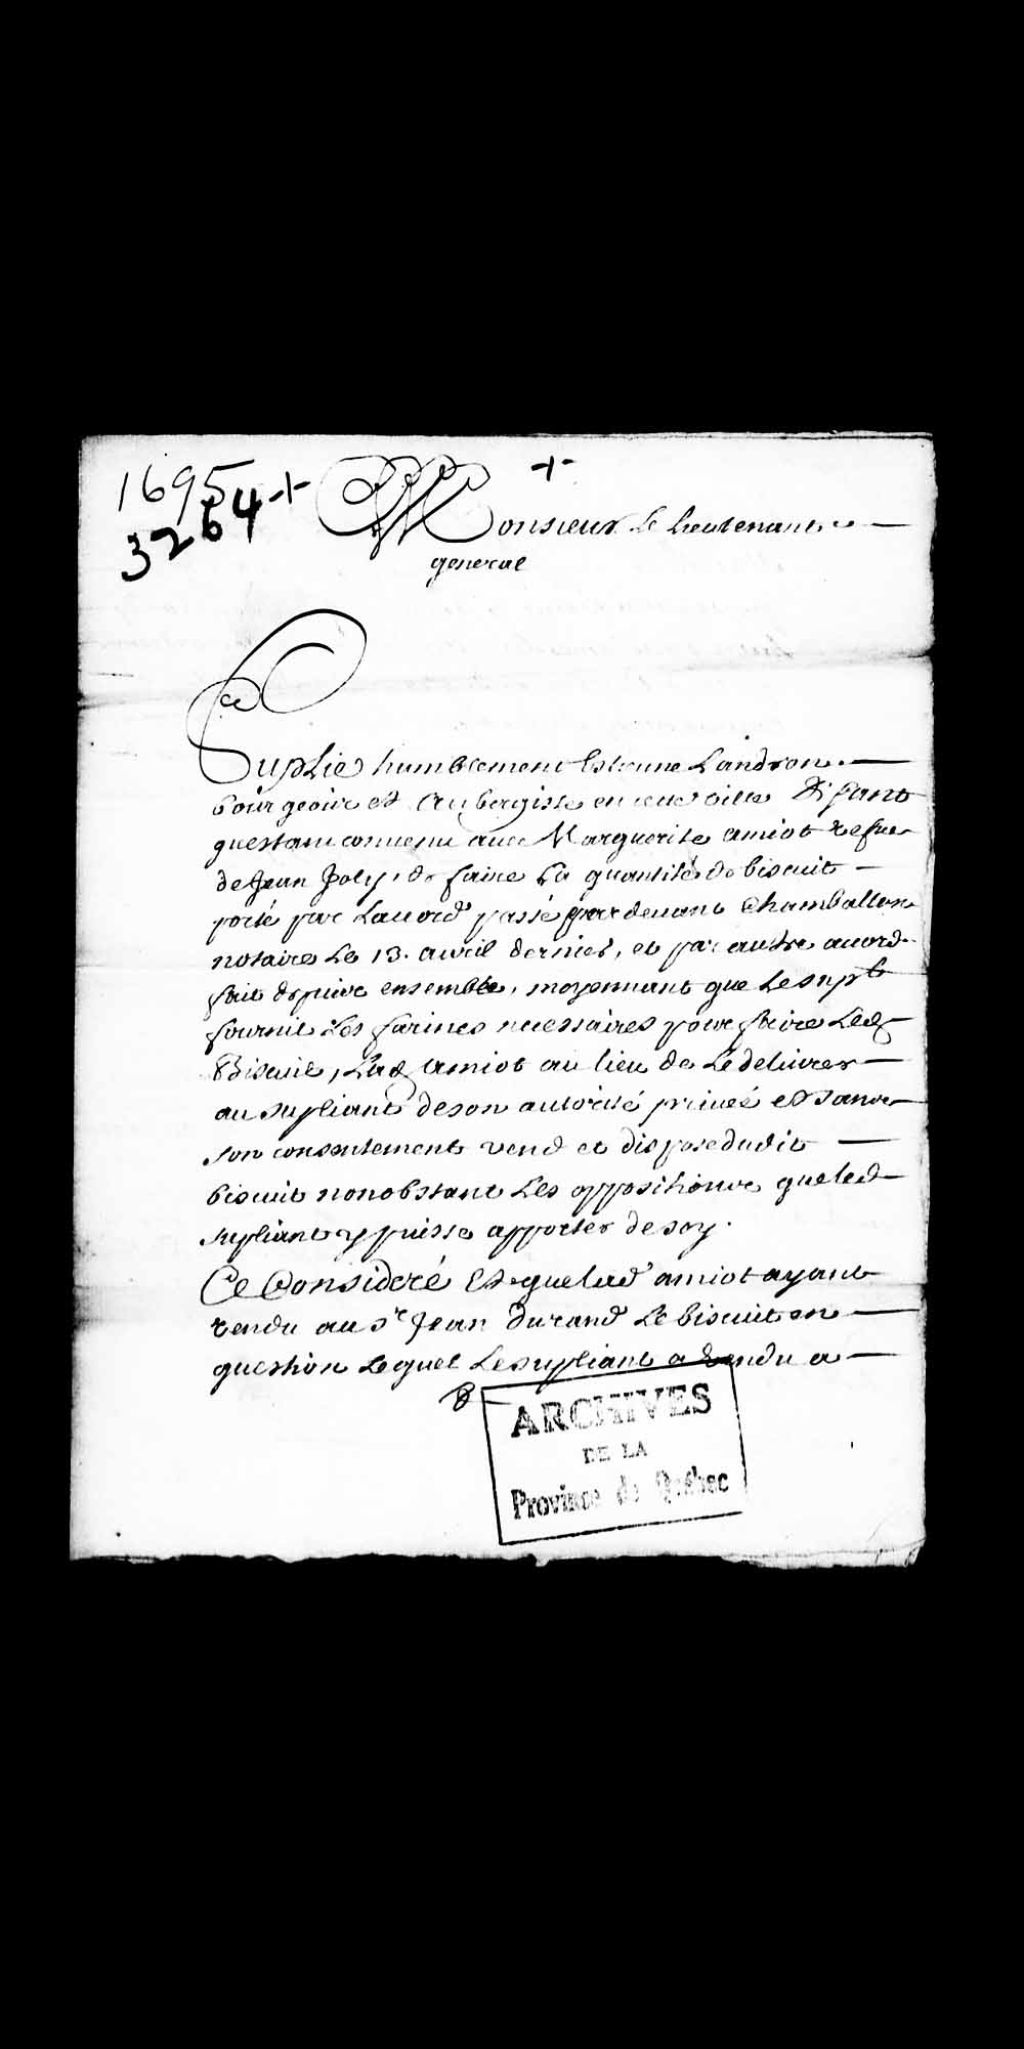 1695
3264 +
+
Monsieur Le Lieutenant
general
Suplie humblement Estienne Landron
bourgeois et Aubergiste en cette ville Disant
questant convenu avec Marguerite amiot vefue
de Jean Joly, de faire La quantité de biscuit
porté par Lacord passé pardevant Chamballon
notaire Le 13. avril dernier, et par autre acord
fait depuis ensemble, moyennant que Le supt
fournit Les farines necessaires pour faire Led
Biscuit, Lad Amiot au lieu de Le delivrer
au supliant de son autorité privée et sans
son consentement vend et dispose dudit
biscuit nonobstant Les oppositions que led
supliant y puisse apporter de soy.
Ce Consideré Et que lad amiot ayant
vendu au sr Jean Durand Le biscuit en
question Lequel Le supliant a vendu a
ARCHIVES
DE LA
Province de Québec